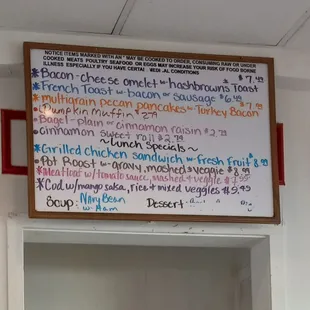 NOTICE ITEMS MARKED WITH AN * MAY BE COOKED TO ORDER, CONSUMING RAW OR UNDER
COOKED MEATS POULTRY SEAFOOD OR EGGS MAY INCREASE YOUR RISK OF FOOD BORNE
ILLNESS ESPECIALLY IF YOU HAVE CERTAI MEDI AL CONDITIONS
*Bacon-cheese omelet w/hashbrowns Toast $7.49
*French Toast w-bacon or sausage $6.49
*multigrain pecan pancakes w-Turkey Bacon $7.99
Pumpkin Muffin $2.79
*Bagel-plain or cinnamon raisin $2.79
*cinnamon sweet roll $2.79
~Lunch Specials~
*Grilled chicken sandwich w-Fresh Fruit $8.99
*Pot Roast w-gravy, mashed & veggie $8.99
*Meatloaf w/tomato sauce, mashed & veggie $7.99
*Cod w/mango salsa, rice & mixed veggies $9.99
Soup: Navy Bean Dessert
w-Ham